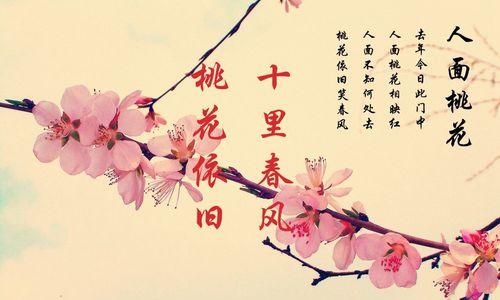 人面桃花
去年今日此门中
人面桃花相映红
人面不知何处去
桃花依旧笑春风
十里春风
桃花依旧